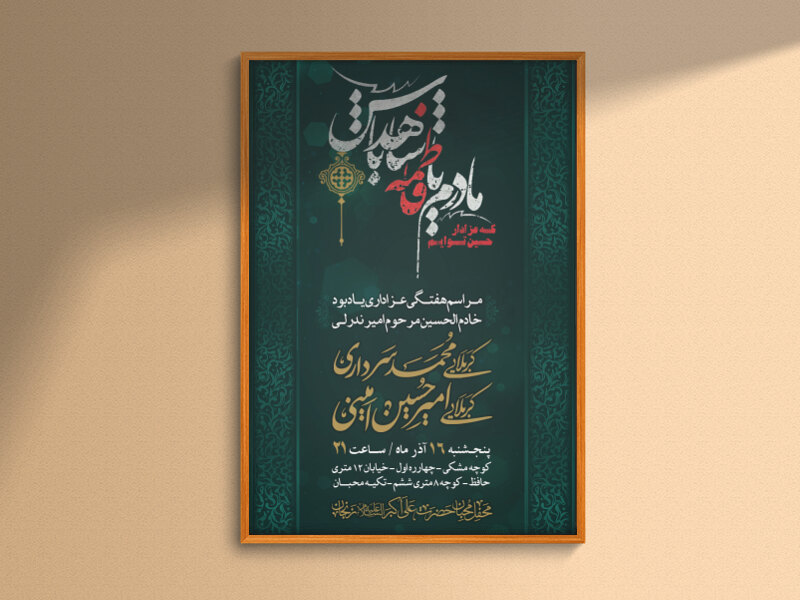 مادرم یا فاطمه
شاها باش
که عزادار
حسین توایم
مراسم هفتگی عزاداری یادبود
خادم الحسین مرحوم امیر ندرلی
کربلایی محمد سرداری
کربلایی امیرحسین امینی
پنجشنبه ۱۶ آذر ماه / ساعت ۲۱
کوچه مشکی - چهارره اول - خیابان ۱۲ متری
حافظ - کوچه ۸ متری ششم - تکیه محبان
محفل محبان حضرت علی اکبر علیه السلام زنجان